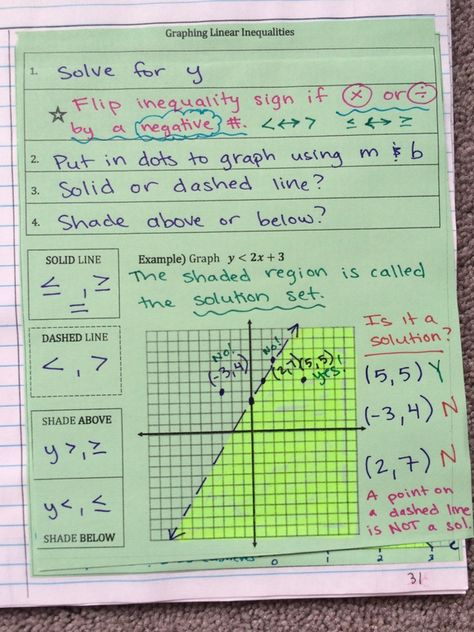 Graphing Linear Inequalities
1. Solve for y
☆ Flip inequality sign if × or ÷
by a negative #. < ↔ > ≤ ↔ ≥
2. Put in dots to graph using m & b
3. Solid or dashed line?
4. Shade above or below?
SOLID LINE
≤, ≥
=
DASHED LINE
<, >
SHADE ABOVE
y >, ≥
y <, ≤
SHADE BELOW
Example) Graph y < 2x + 3
The shaded region is called
the solution set.
No!
(-3,4)
No!
(2,7)
(5,5)
yes!
Is it a
solution?
(5,5) Y
(-3,4) N
(2,7) N
A point on
a dashed line
is NOT a sol.
0 1 2 3
31